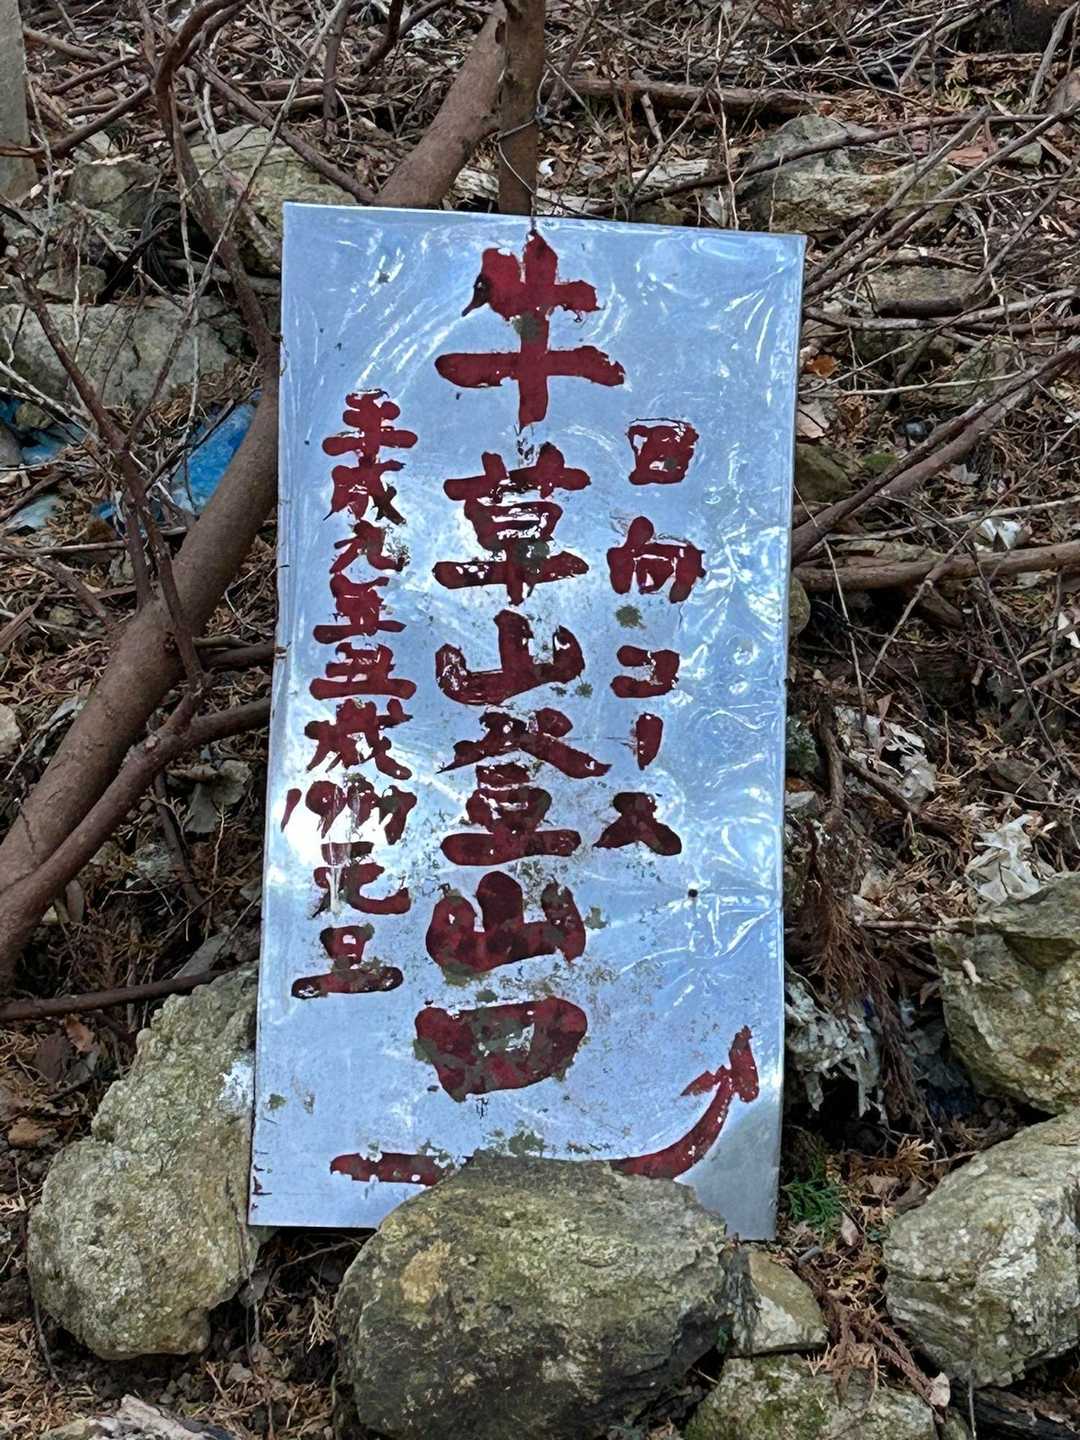 日向コース
牛草山登山口
平成九年丑歳元旦